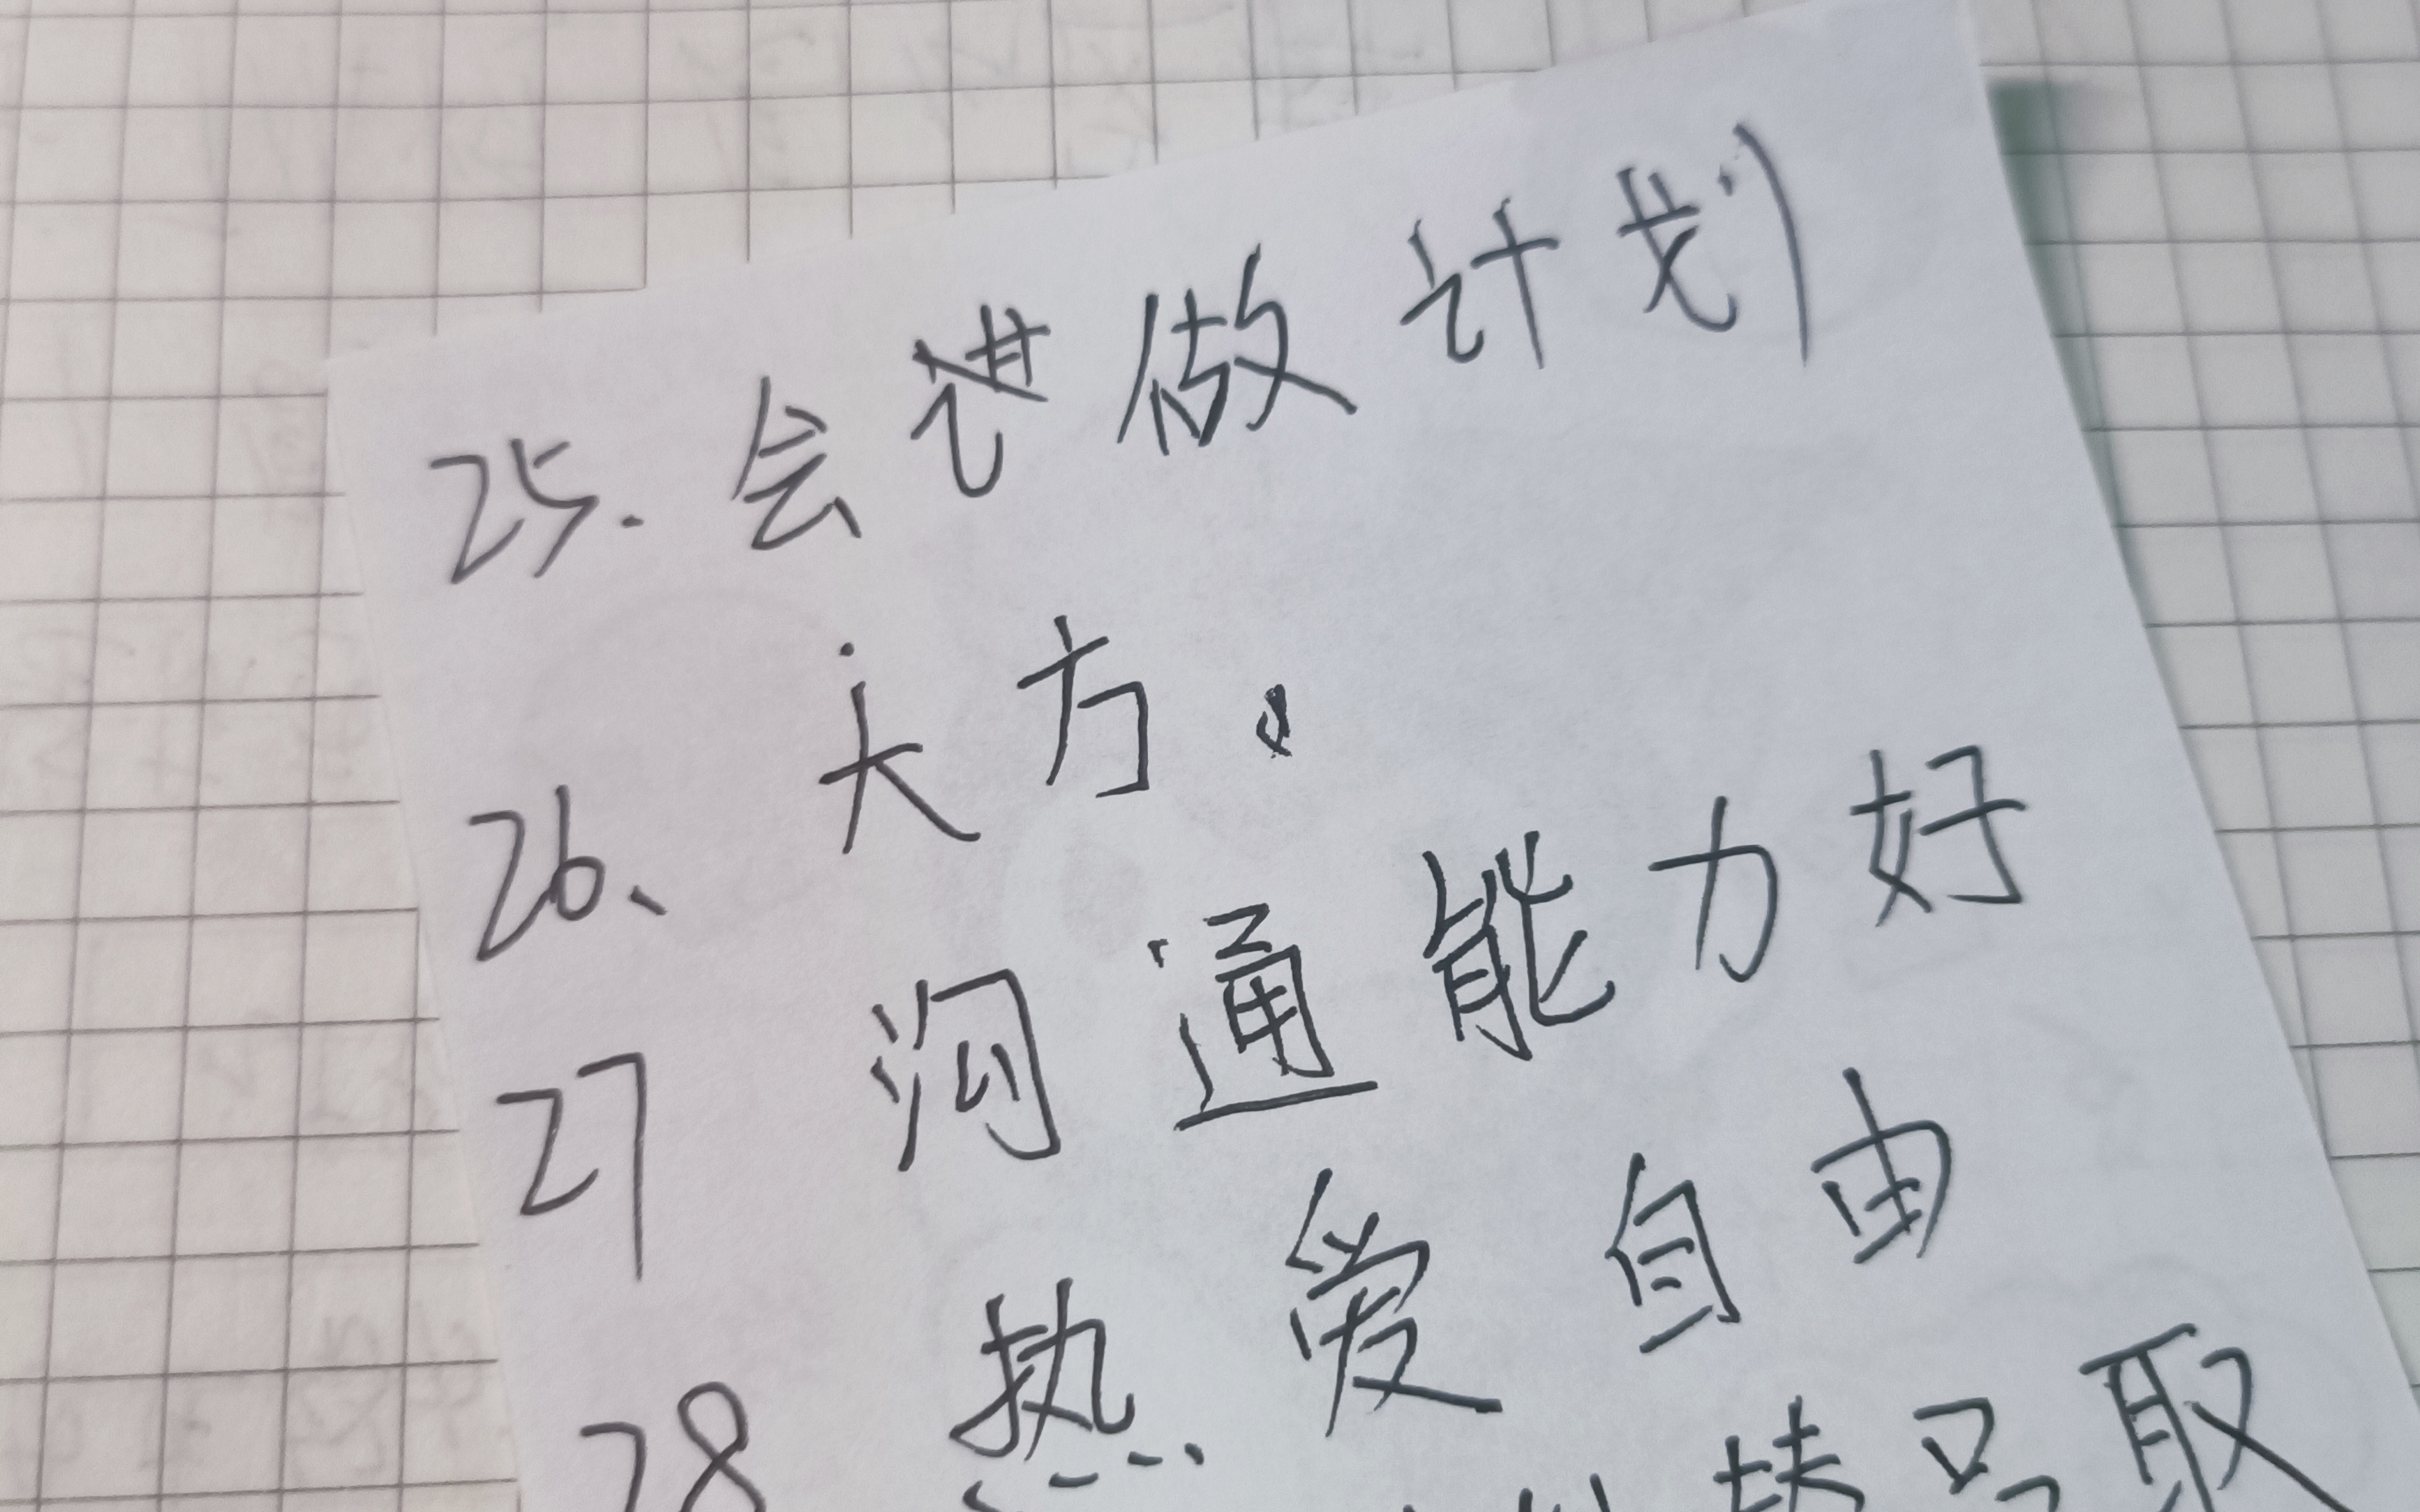 25. 会做计划
26、大方.
27 沟通能力好
28 热爱自由
取